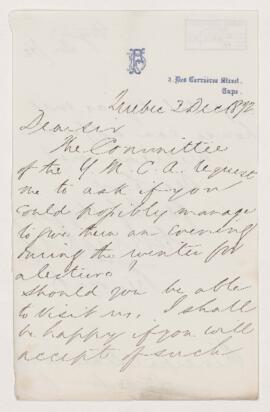 2, Des Carrières Street,
Cape.
Quebec 2 Dec 1892
Dear Sir
The Committee
of the Y. M. C. A. request
me to ask if you
could possibly manage
to give them an evening
during the winter for
a lecture?
Should you be able
to visit us, I shall
be happy if you will
accept of such